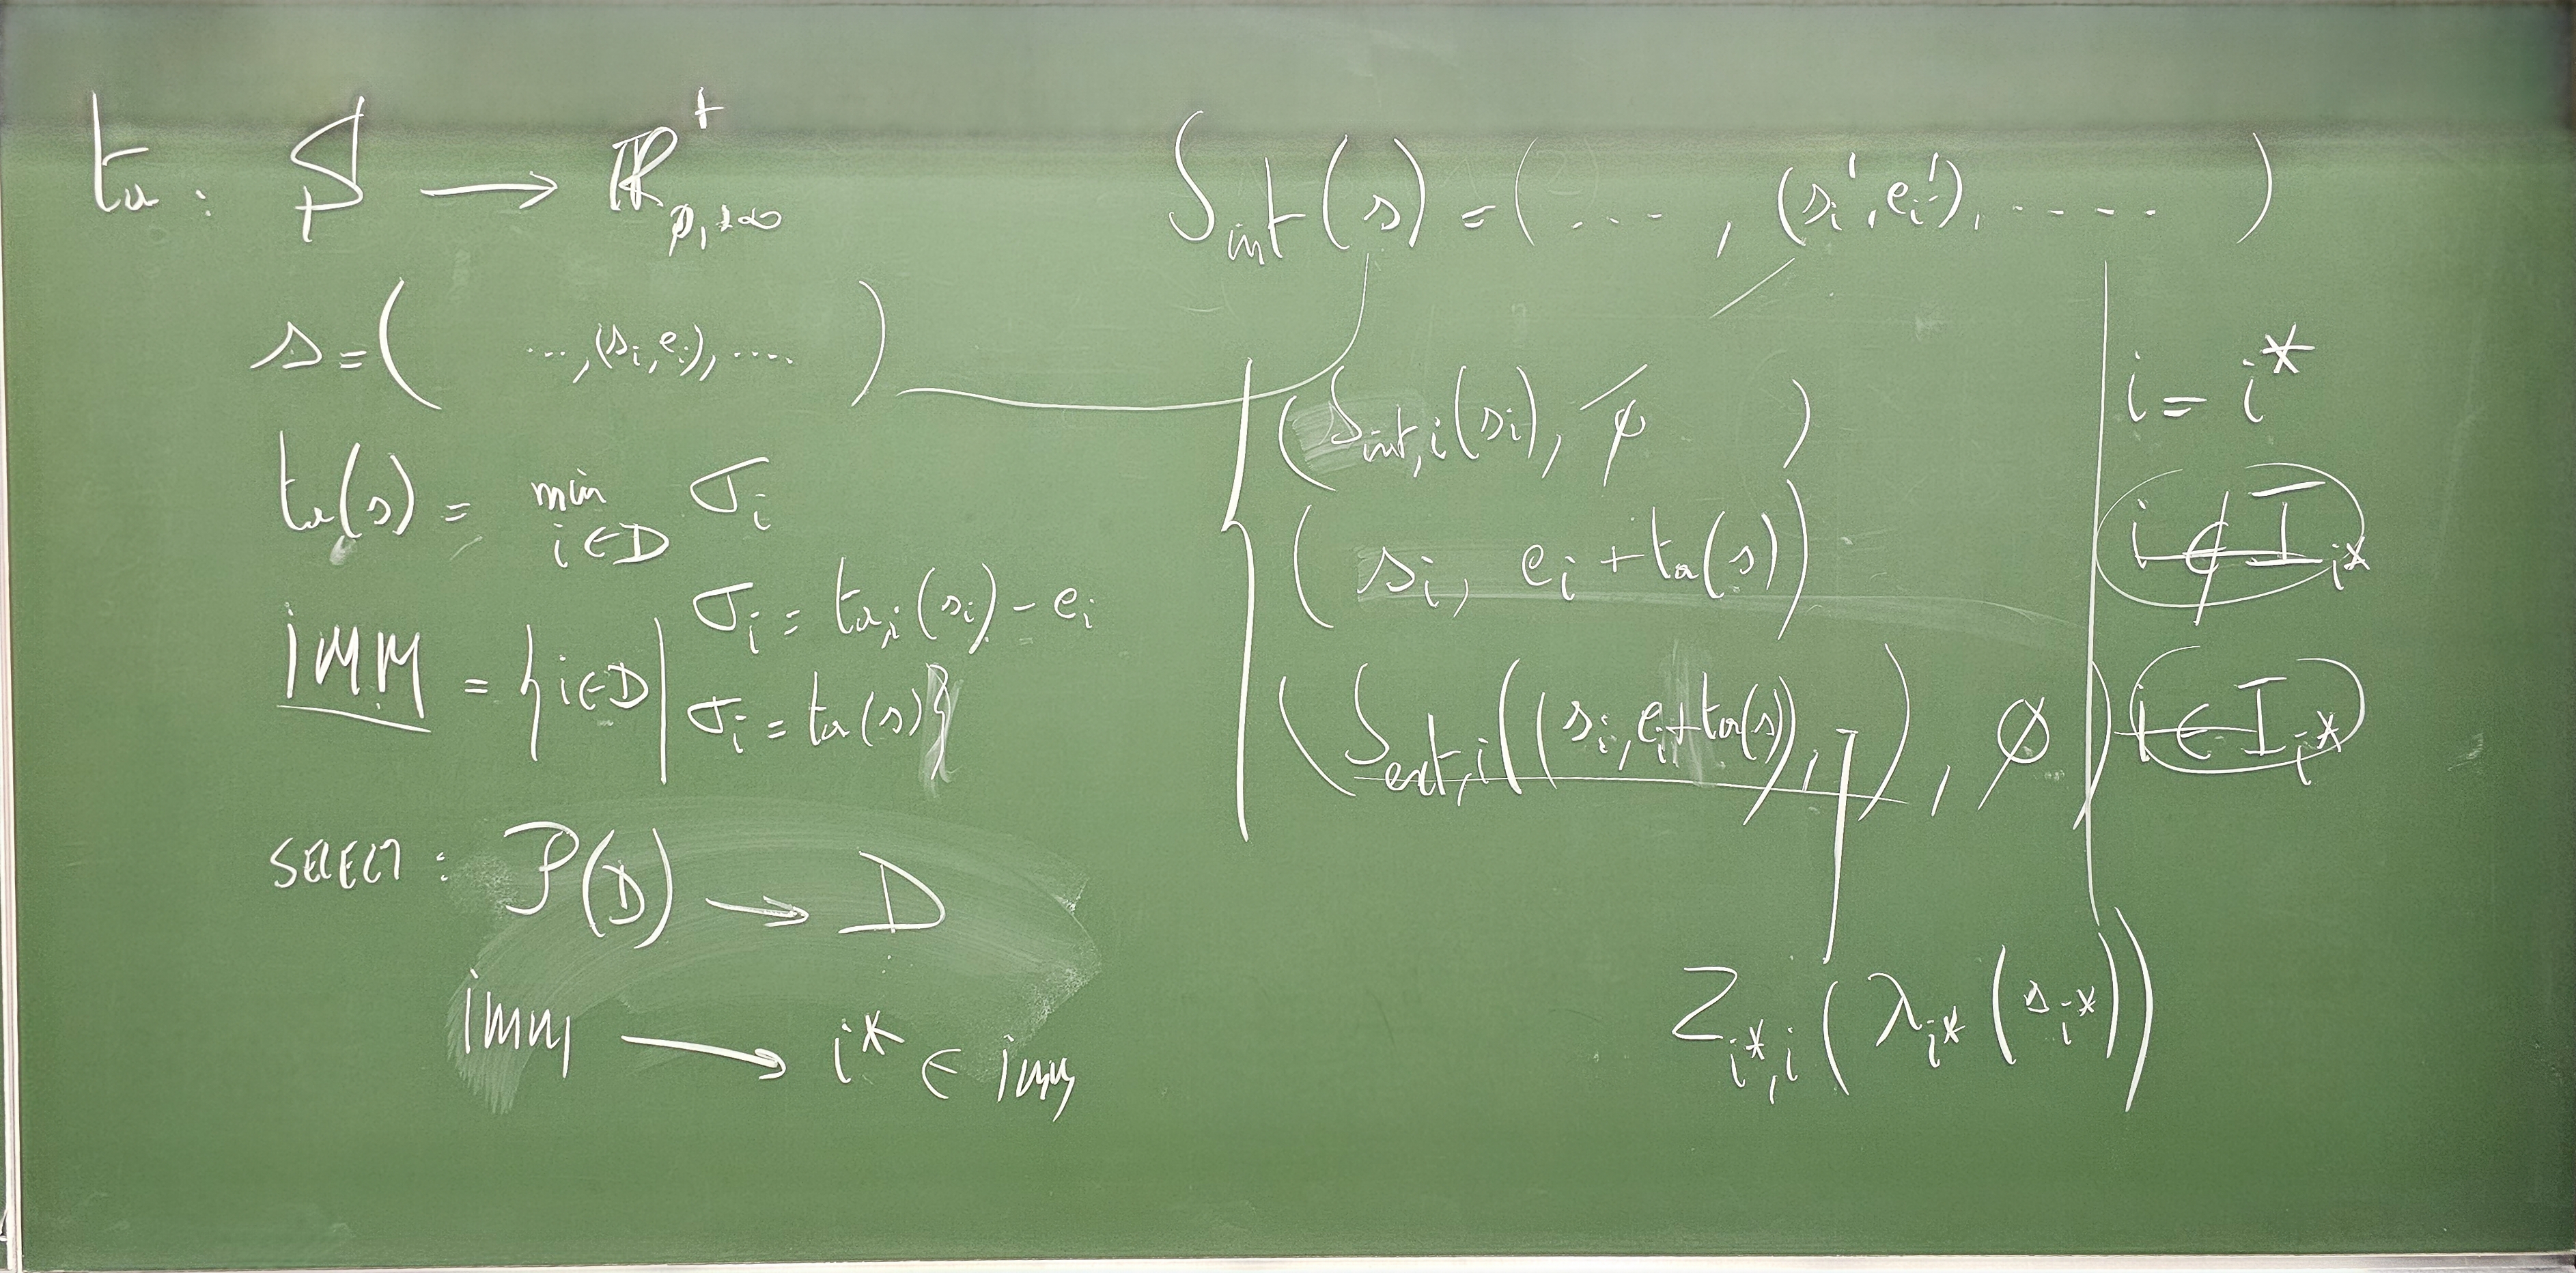 ta : S → ℝ⁺₀,₊∞
s = ( ..., (sᵢ, eᵢ), .... )
ta(s) = min i∈D σᵢ
σᵢ = ta,ᵢ(sᵢ) - eᵢ
IMM = { i∈D | σᵢ = ta(s) }
SELECT : P(D) → D
imm → i* ∈ imm
δint(s) = ( ... , (sᵢ', eᵢ'), ..... )
( δint,i(sᵢ), 0 ) i = i*
( sᵢ, eᵢ + ta(s) ) i ∉ I_i*
( δext,i((sᵢ, eᵢ+ta(s)), ), 0 ) i ∈ I_i*
Z_i*,i ( λ_i* ( s_i* ) )